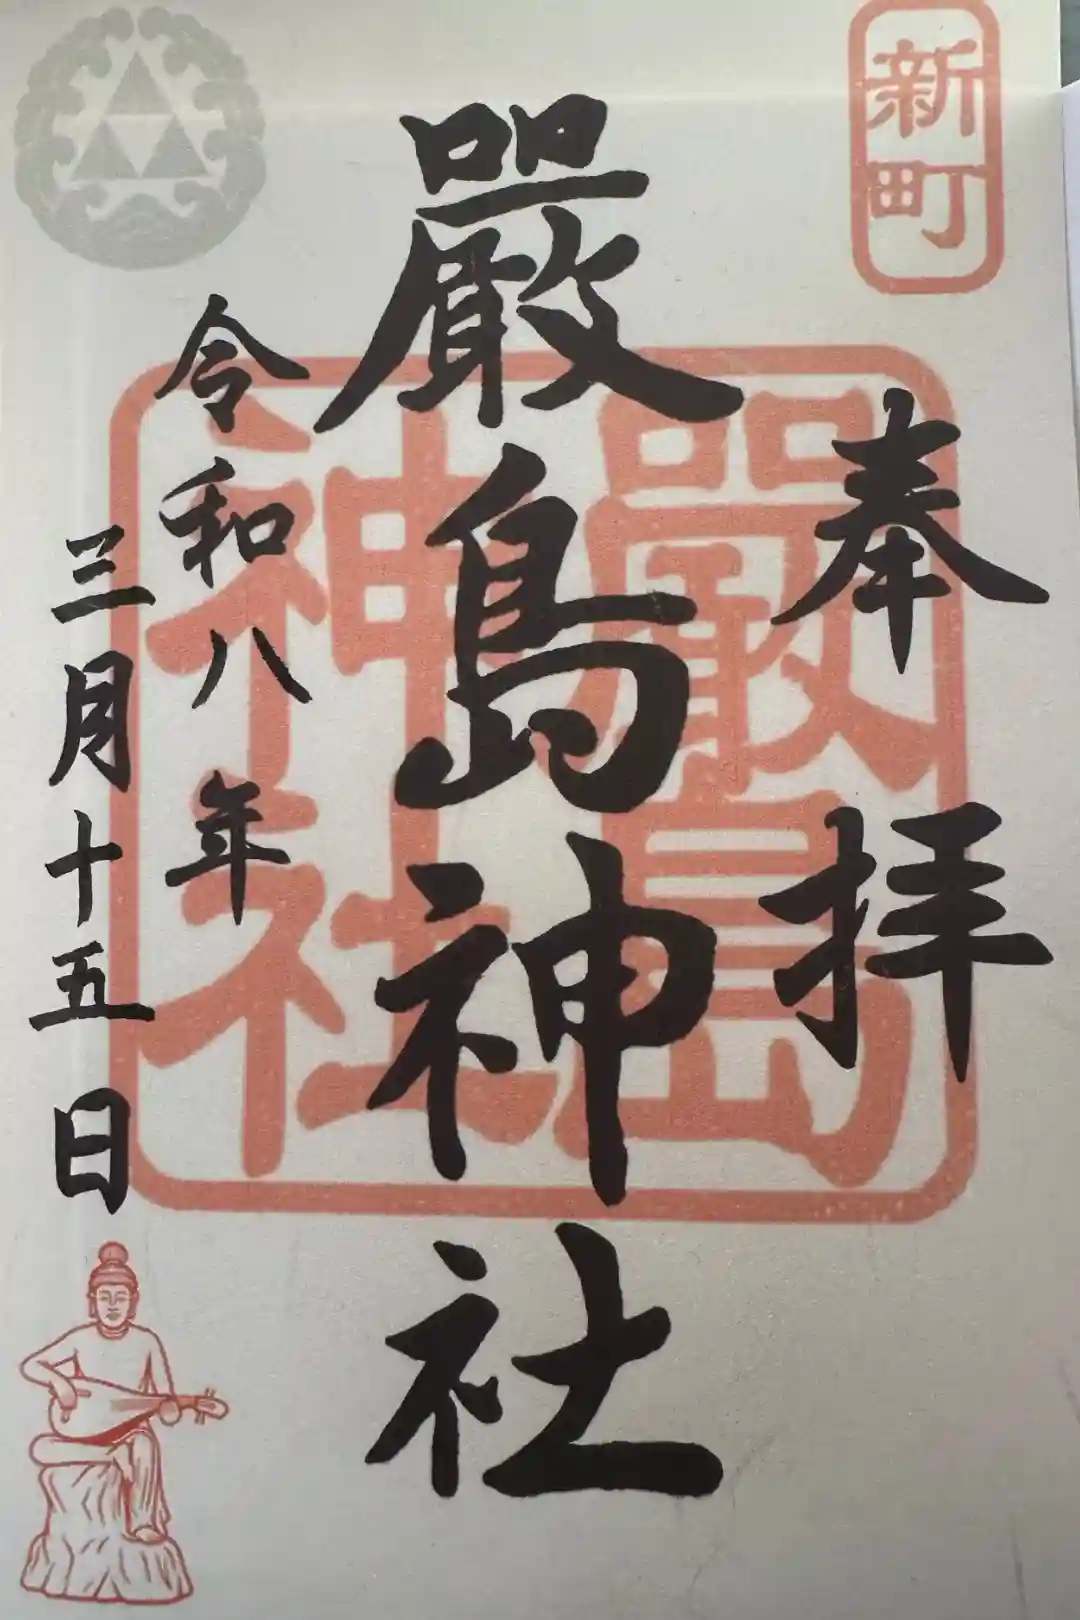 新町
奉拝
嚴島神社
嚴島
神社
令和八年
三月十五日